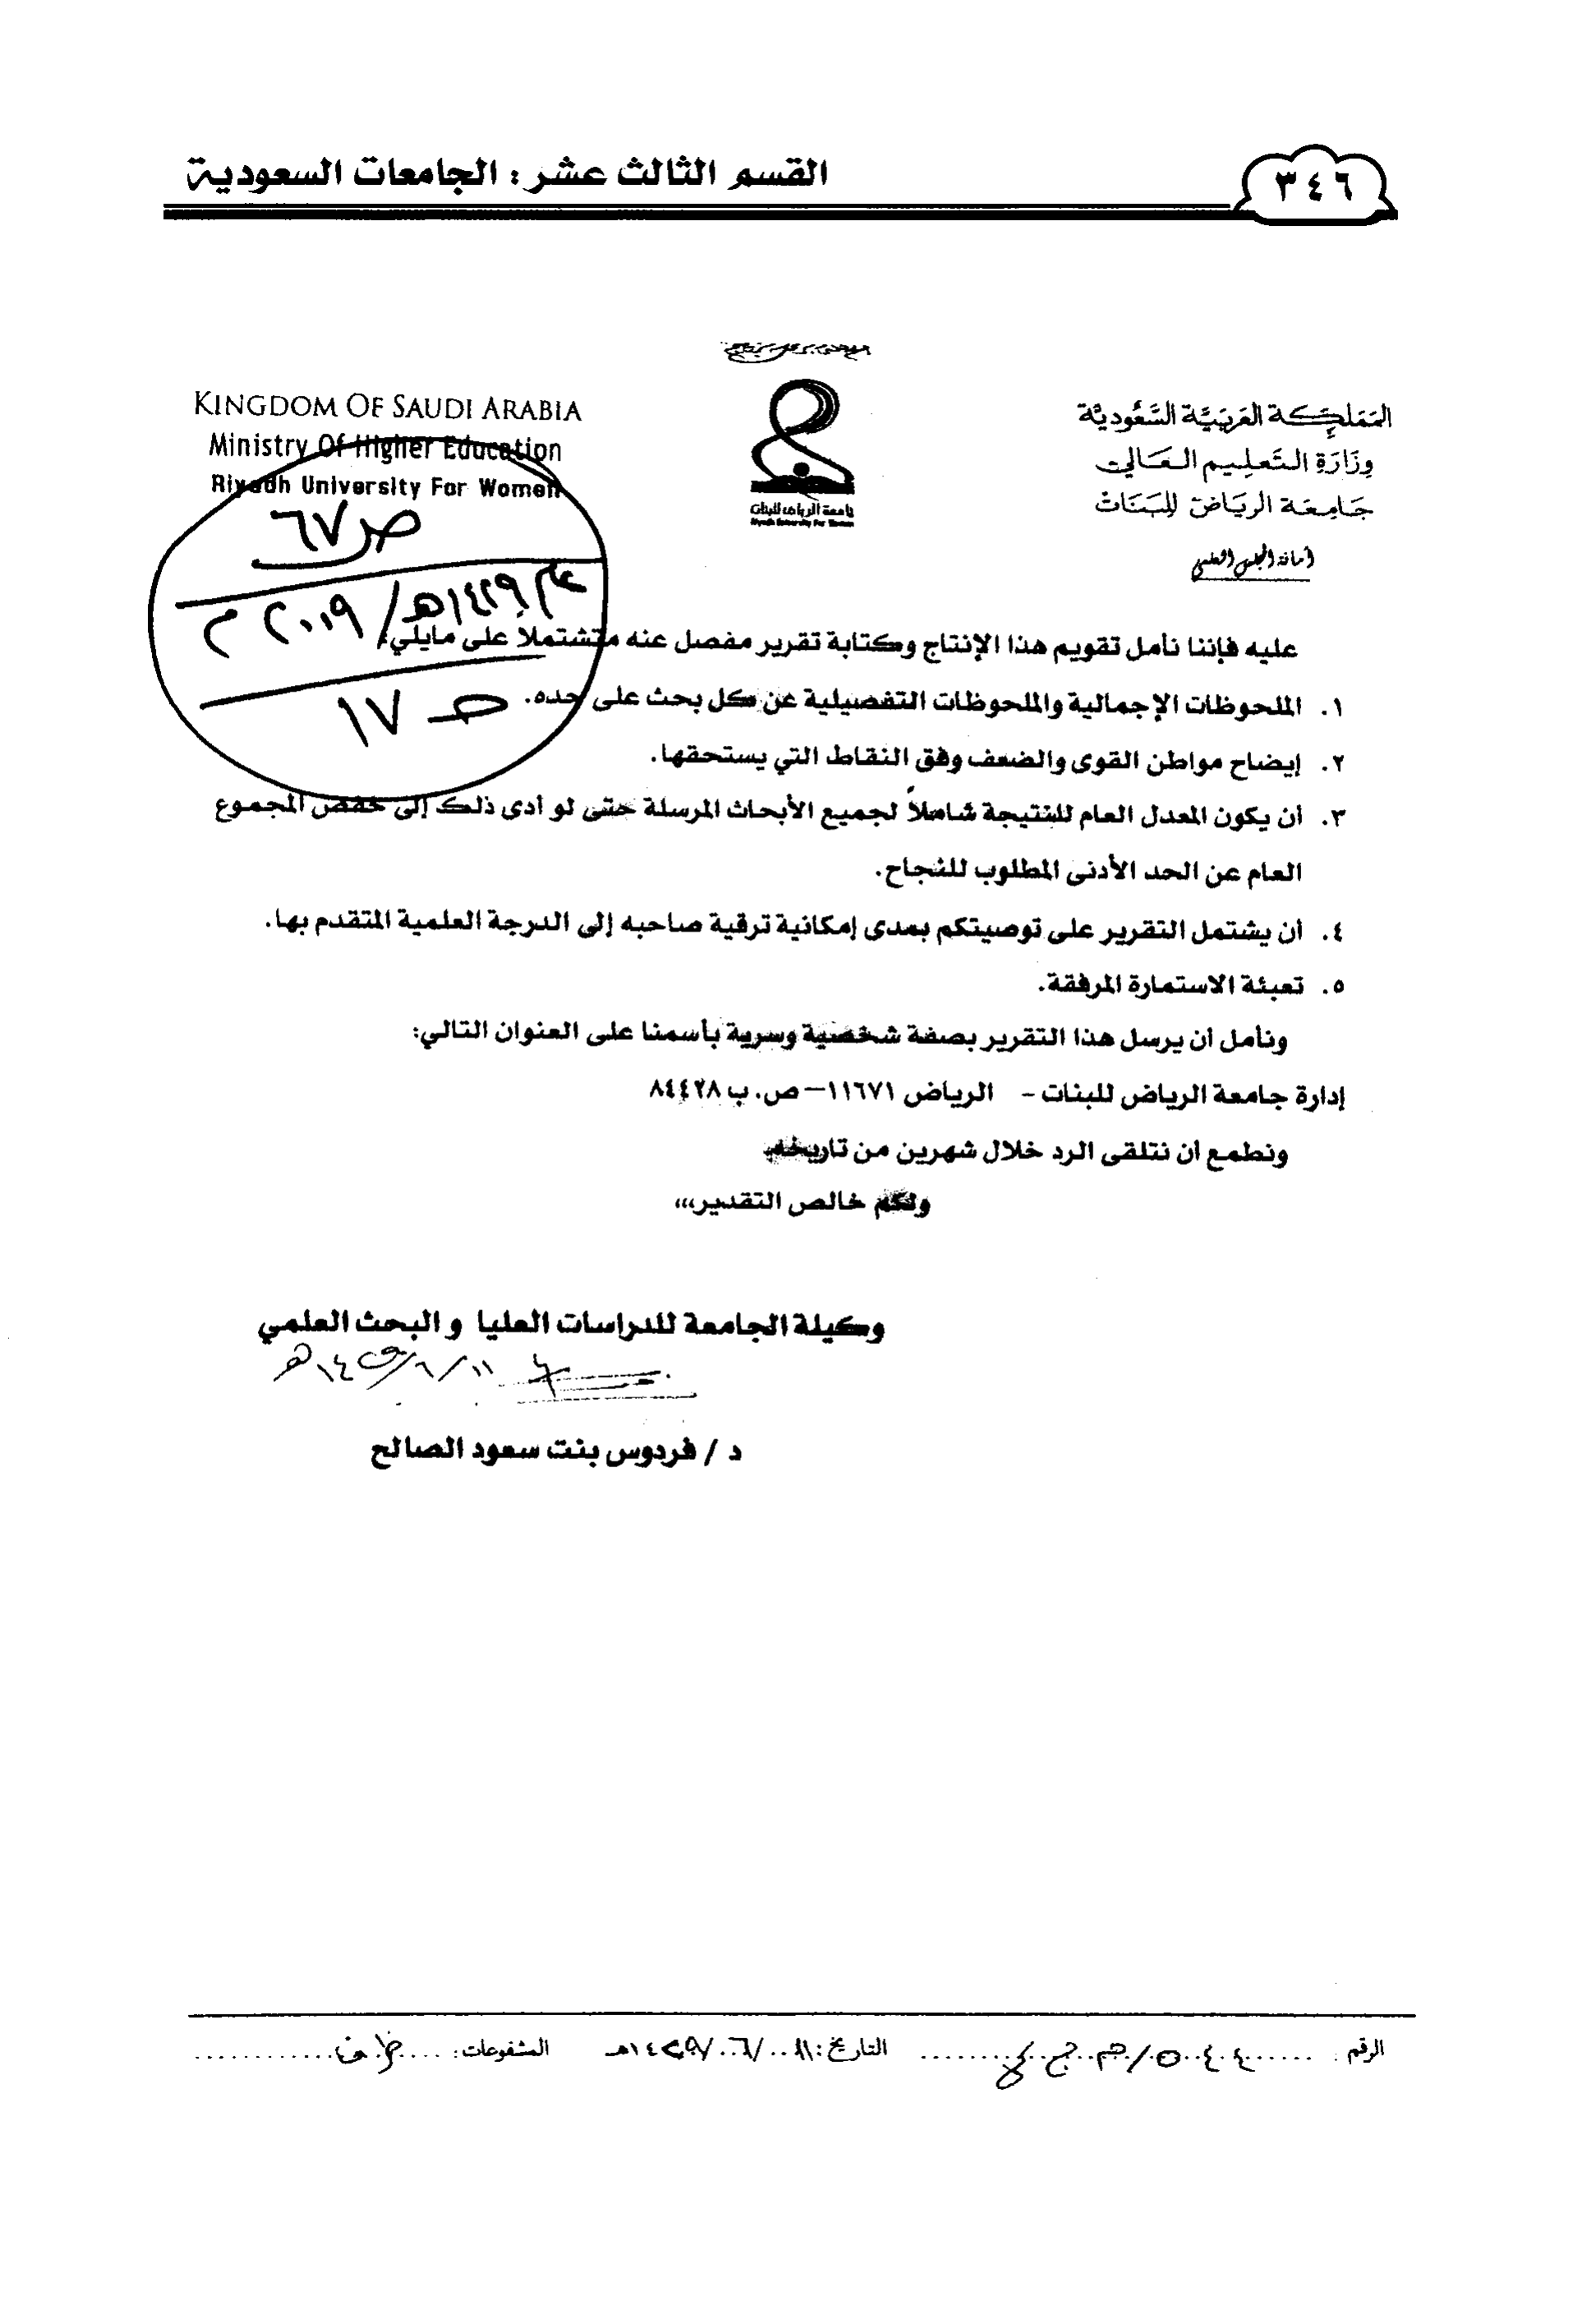 القسم الثالث عشر : الجامعات السعودية
٣٤٦
المملكة العربية السعودية
وزارة التعليم العالي
جامعة الرياض للبنات
أمانة المجلس العلمي
جامعة الرياض للبنات
Riyadh University For Women
KINGDOM OF SAUDI ARABIA
Ministry Of Higher Education
Riyadh University For Women
ص ٦٧
عام ١٤٢٩هـ/ ٢٠٠٩ م
حـ ١٧
عليه فإننا نأمل تقويم هذا الإنتاج وكتابة تقرير مفصل عنه متشتملا على مايلي:
١. الملحوظات الإجمالية والملحوظات التفصيلية عن كل بحث على حده.
٢. إيضاح مواطن القوى والضعف وفق النقاط التي يستحقها.
٣. أن يكون المعدل العام للنتيجة شاملاً لجميع الأبحاث المرسلة حتى لو أدى ذلك إلى خفض المجموع
العام عن الحد الأدنى المطلوب للنجاح.
٤. أن يشتمل التقرير على توصيتكم بمدى إمكانية ترقية صاحبه إلى الدرجة العلمية المتقدم بها.
٥. تعبئة الاستمارة المرفقة.
ونأمل أن يرسل هذا التقرير بصفة شخصية وسرية بأسمنا على العنوان التالي:
إدارة جامعة الرياض للبنات - الرياض ١١٦٧١– ص. ب ٨٤٤٢٨
ونطمع أن نتلقى الرد خلال شهرين من تاريخه.
ولكم خالص التقدير،،،
وكيلة الجامعة للدراسات العليا و البحث العلمي
١١/٦/١٤٢٩هـ
د / فردوس بنت سعود الصالح
الرقم : التاريخ: ١١/٠٦/١٤٢٩هـ المشفوعات: